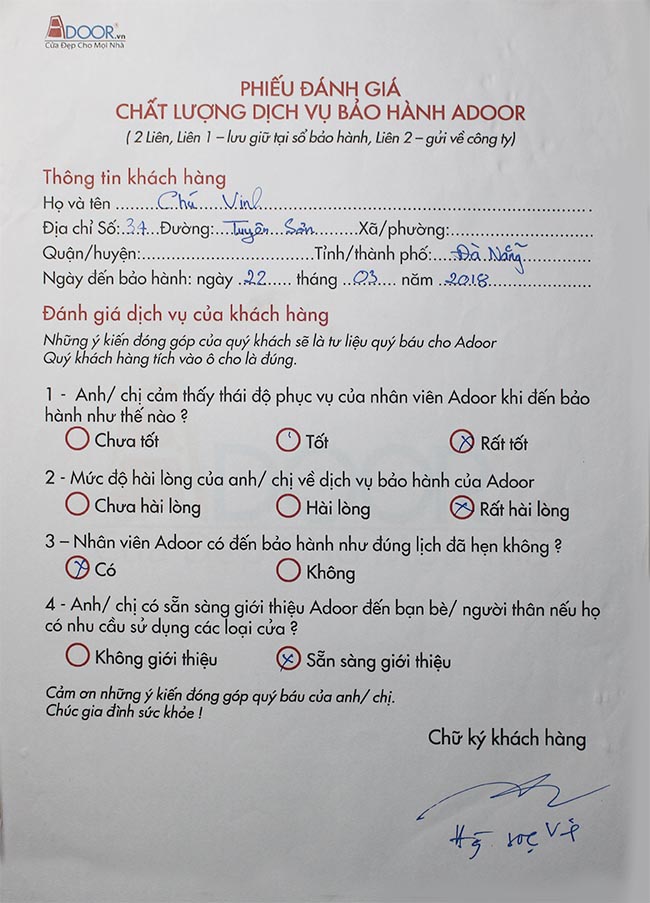 ADOOR.vn
Cửa Đẹp Cho Mọi Nhà
PHIẾU ĐÁNH GIÁ
CHẤT LƯỢNG DỊCH VỤ BẢO HÀNH ADOOR
( 2 Liên, Liên 1 – lưu giữ tại sổ bảo hành, Liên 2 – gửi về công ty)
Thông tin khách hàng
Họ và tên ......Chú Vinh......
Địa chỉ Số:.34...Đường:.Tuyên Sơn.......Xã/phường:..............................
Quận/huyện:....................................Tỉnh/thành phố:...Đà Nẵng......
Ngày đến bảo hành: ngày .22..... tháng ..03.... năm .2018......
Đánh giá dịch vụ của khách hàng
Những ý kiến đóng góp của quý khách sẽ là tư liệu quý báu cho Adoor
Quý khách hàng tích vào ô cho là đúng.
1 - Anh/ chị cảm thấy thái độ phục vụ của nhân viên Adoor khi đến bảo
hành như thế nào ?
Chưa tốt Tốt Rất tốt
2 - Mức độ hài lòng của anh/ chị về dịch vụ bảo hành của Adoor
Chưa hài lòng Hài lòng Rất hài lòng
3 – Nhân viên Adoor có đến bảo hành như đúng lịch đã hẹn không ?
Có Không
4 - Anh/ chị có sẵn sàng giới thiệu Adoor đến bạn bè/ người thân nếu họ
có nhu cầu sử dụng các loại cửa ?
Không giới thiệu Sẵn sàng giới thiệu
Cảm ơn những ý kiến đóng góp quý báu của anh/ chị.
Chúc gia đình sức khỏe !
Chữ ký khách hàng